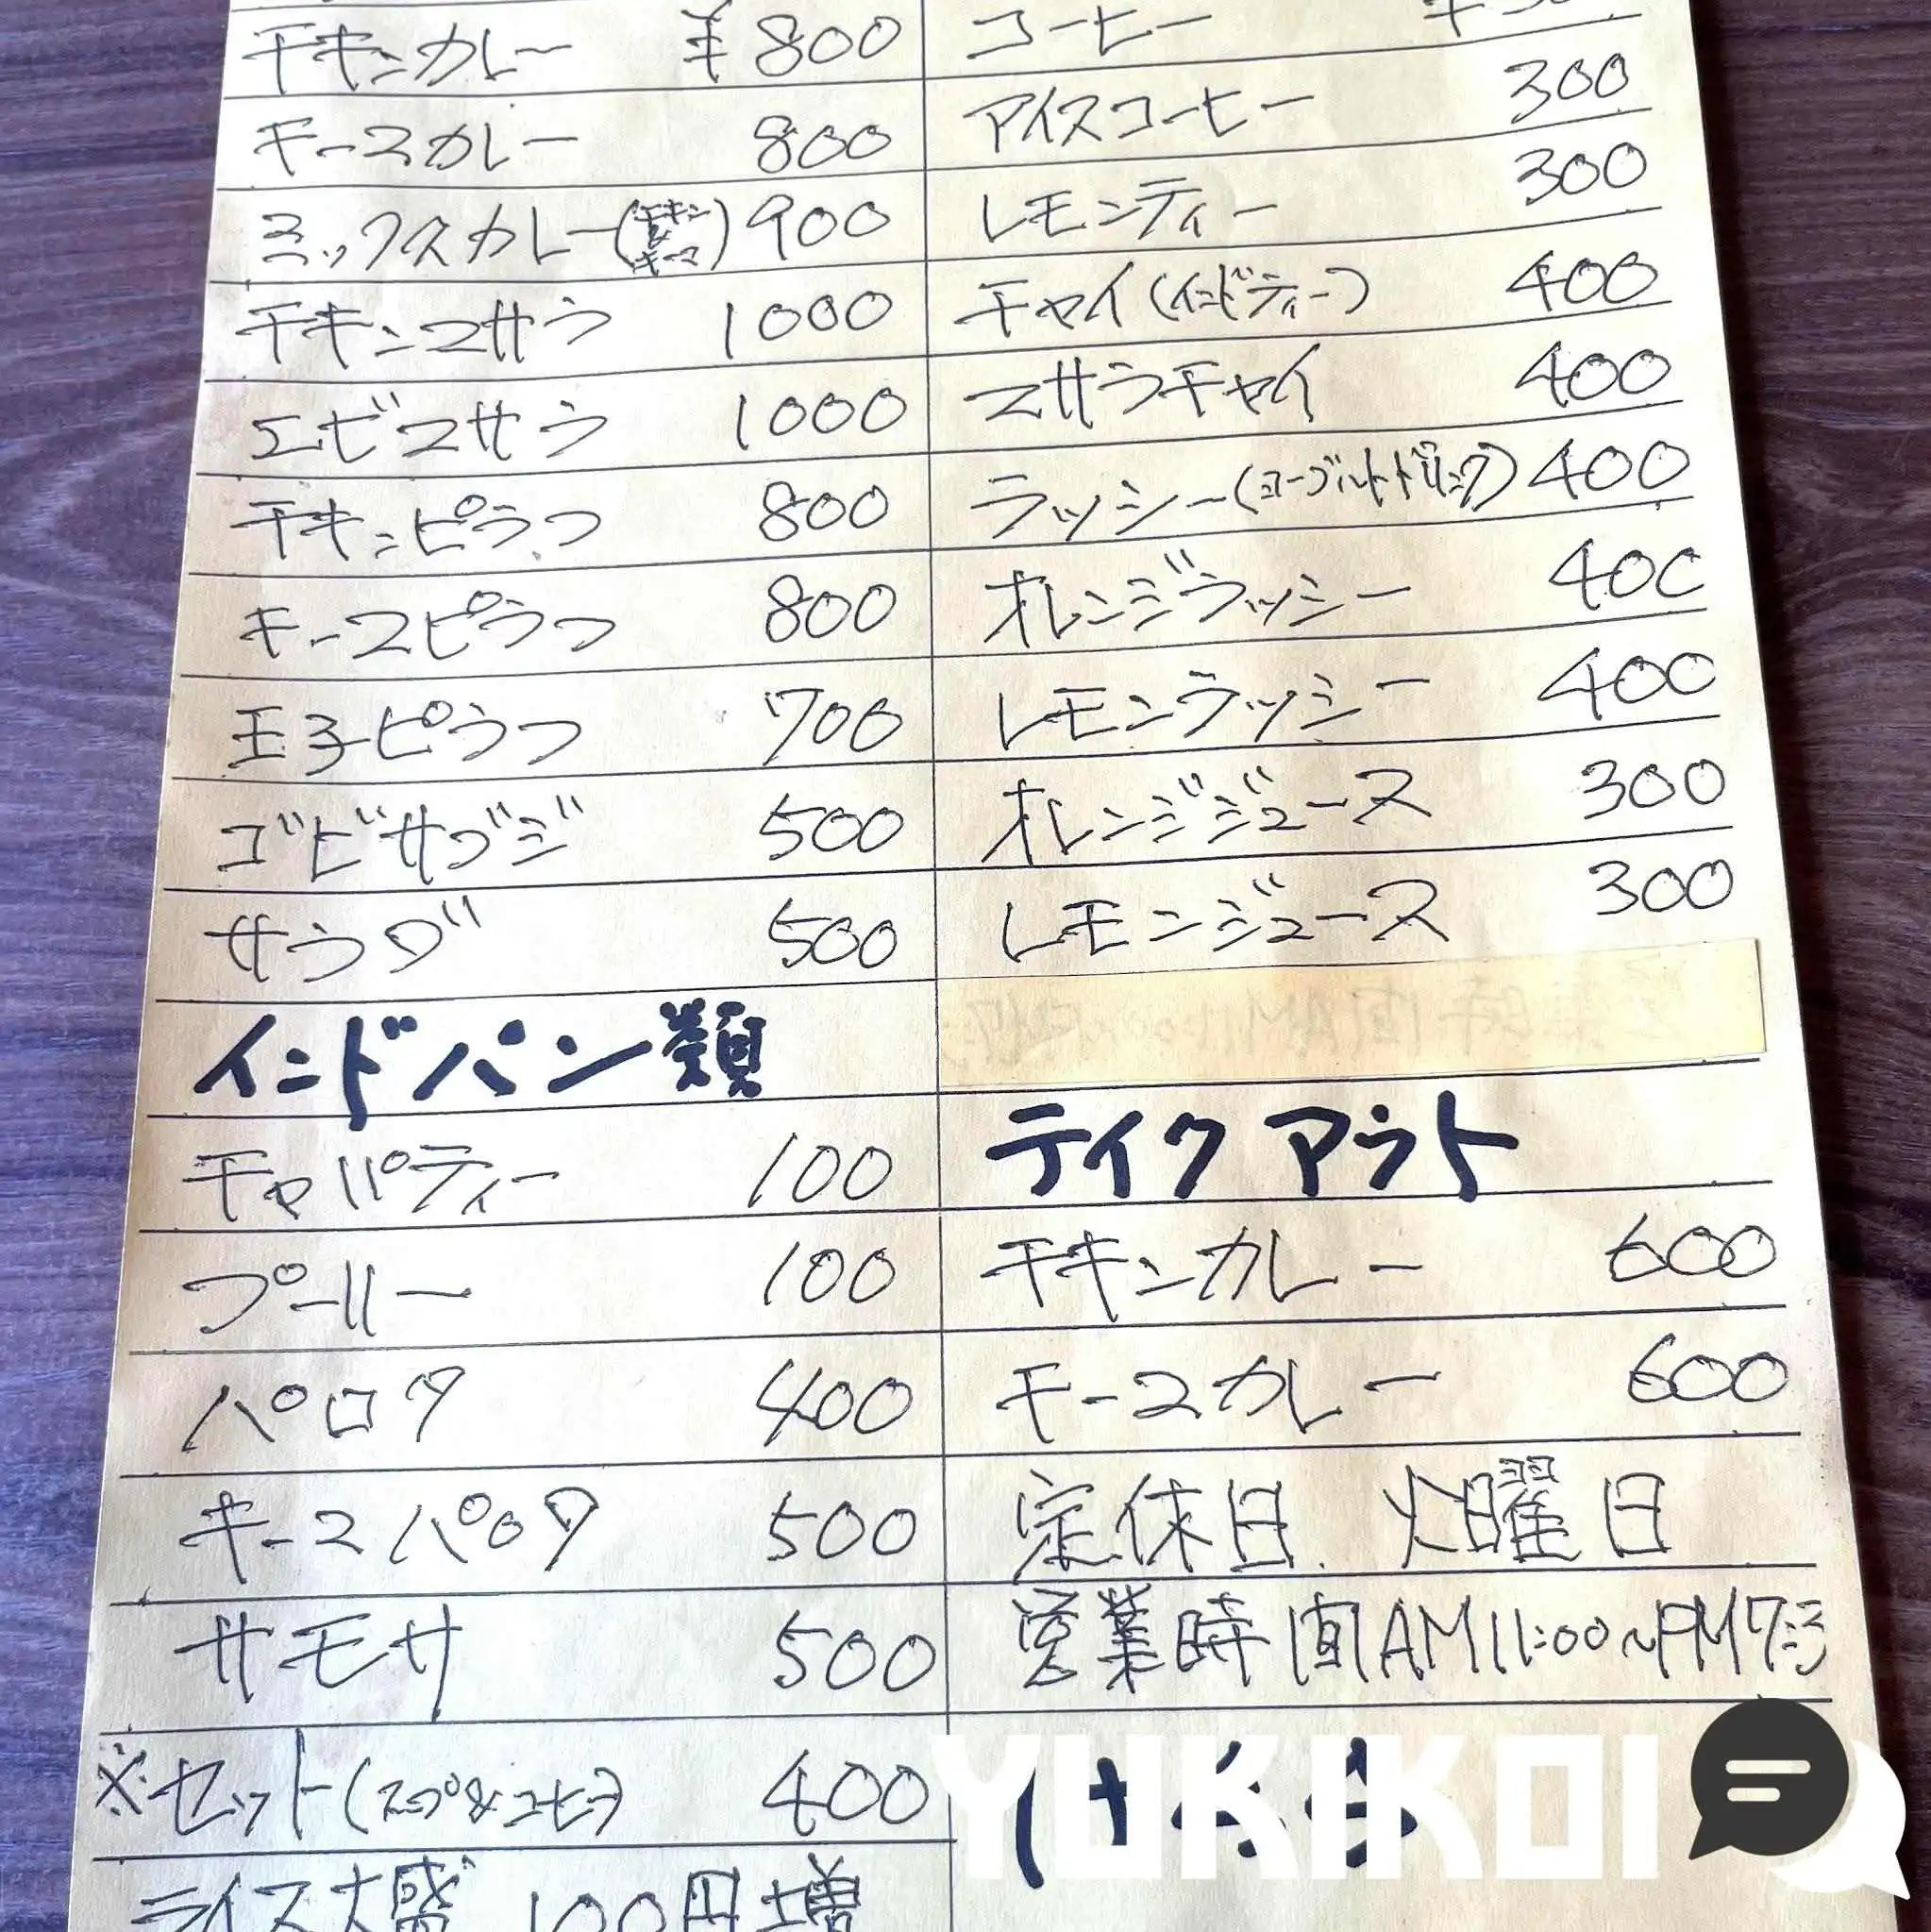 チキンカレー ¥800
キーマカレー 800
ミックスカレー(チキン&キーマ) 900
チキンマサラ 1000
エビマサラ 1000
チキンピラフ 800
キーマピラフ 800
玉子ピラフ 700
ゴビサブジ 500
サラダ 500
インドパン類
チャパティー 100
プーリー 100
パロタ 400
キーマパロタ 500
サモサ 500
※セット(スープ&コーヒー) 400
ライス大盛 100円増
コーヒー
アイスコーヒー 300
レモンティー 300
チャイ(インドティー) 400
マサラチャイ 400
ラッシー(ヨーグルトドリンク) 400
オレンジラッシー 400
レモンラッシー 400
オレンジジュース 300
レモンジュース 300
テイクアウト
チキンカレー 600
キーマカレー 600
定休日 火曜日
営業時間AM11:00~PM7:3
YUKIKOI